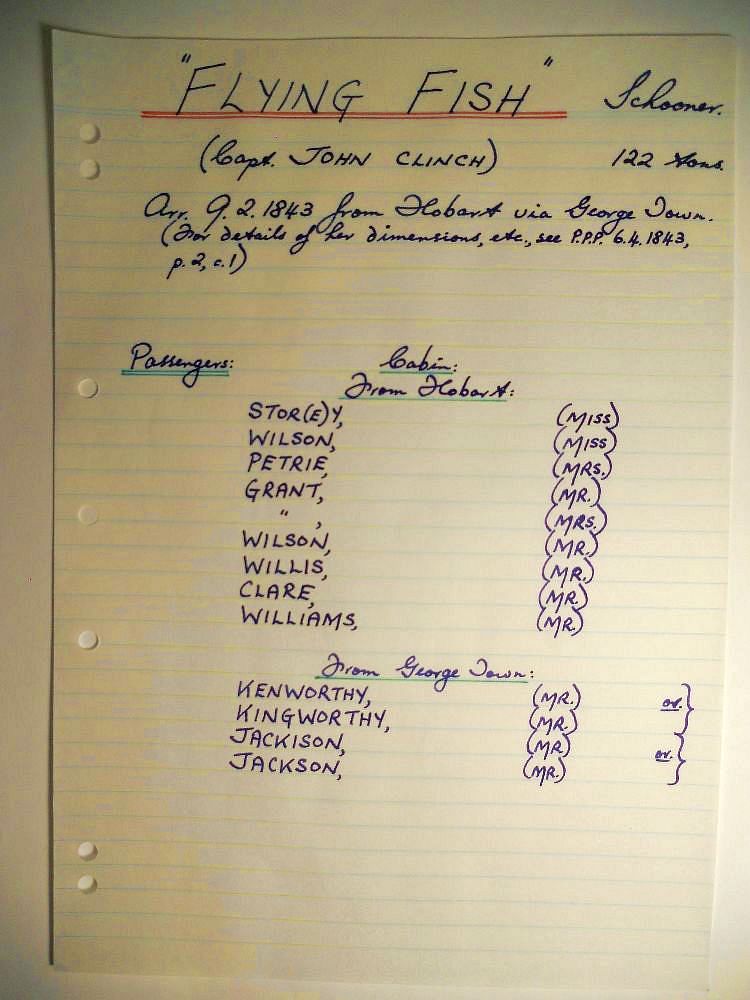 "FLYING FISH" Schooner.
(Capt. JOHN CLINCH) 122 tons.
Arr. 9.2.1843 from Hobart via George Town.
(For details of her dimensions, etc., see P.P.P. 6.4.1843,
p.2, c.1)
Passengers: Cabin:
From Hobart:
STOR(E)Y, (MISS)
WILSON, (MISS)
PETRIE, (MRS.)
GRANT, (MR.)
" , (MRS.)
WILSON, (MR.)
WILLIS, (MR.)
CLARE, (MR.)
WILLIAMS, (MR.)
From George Town:
KENWORTHY, (MR.)
or.}
KINGWORTHY, (MR.)
JACKISON, (MR)
or.}
JACKSON, (MR.)